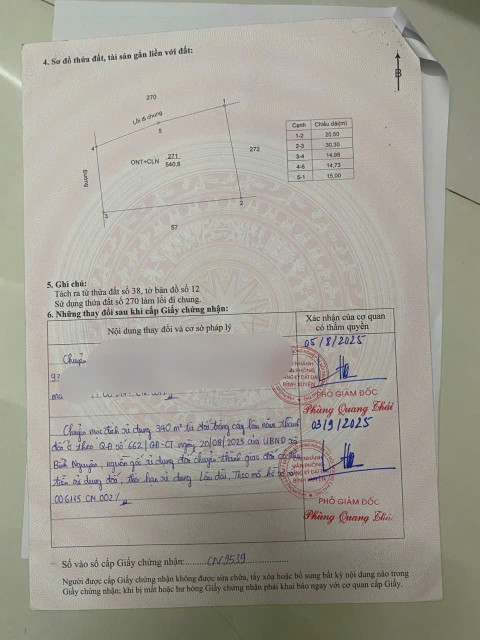 4. Sơ đồ thửa đất, tài sản gắn liền với đất:
B
270
Lối đi chung
1
5
4
ONT+CLN 271
540,8
272
Mương
3
2
57
Cạnh Chiều dài(m)
1-2 20,50
2-3 30,30
3-4 14,98
4-5 14,73
5-1 15,00
5. Ghi chú:
Tách ra từ thửa đất số 38, tờ bản đồ số 12
Sử dụng thửa đất số 270 làm lối đi chung.
6. Những thay đổi sau khi cấp Giấy chứng nhận:
Nội dung thay đổi và cơ sở pháp lý
Xác nhận của cơ quan
có thẩm quyền
Chuyển
05/8/2025
CHI NHÁNH
VĂN PHÒNG
ĐĂNG KÝ ĐẤT ĐAI
BÌNH XUYÊN
PHÓ GIÁM ĐỐC
Phùng Quang Thái
Chuyển mục đích sử dụng 340 m² từ đất trồng cây lâu năm thành
đất ở theo QĐ số 662/QĐ-CT ngày 20/08/2025 của UBND xã
Bình Nguyên, nguồn gốc sử dụng đất chuyển thành giao đất có thu
tiền sử dụng đất, thời hạn sử dụng Lâu dài, Theo mã hồ sơ số
006145.CN.002/
03/9/2025
CHI NHÁNH
VĂN PHÒNG
ĐĂNG KÝ ĐẤT ĐAI
BÌNH XUYÊN
PHÓ GIÁM ĐỐC
Phùng Quang Thái
Số vào sổ cấp Giấy chứng nhận:......CN9539
Người được cấp Giấy chứng nhận không được sửa chữa, tẩy xóa hoặc bổ sung bất kỳ nội dung nào trong
Giấy chứng nhận; khi bị mất hoặc hư hỏng Giấy chứng nhận phải khai báo ngay với cơ quan cấp Giấy.